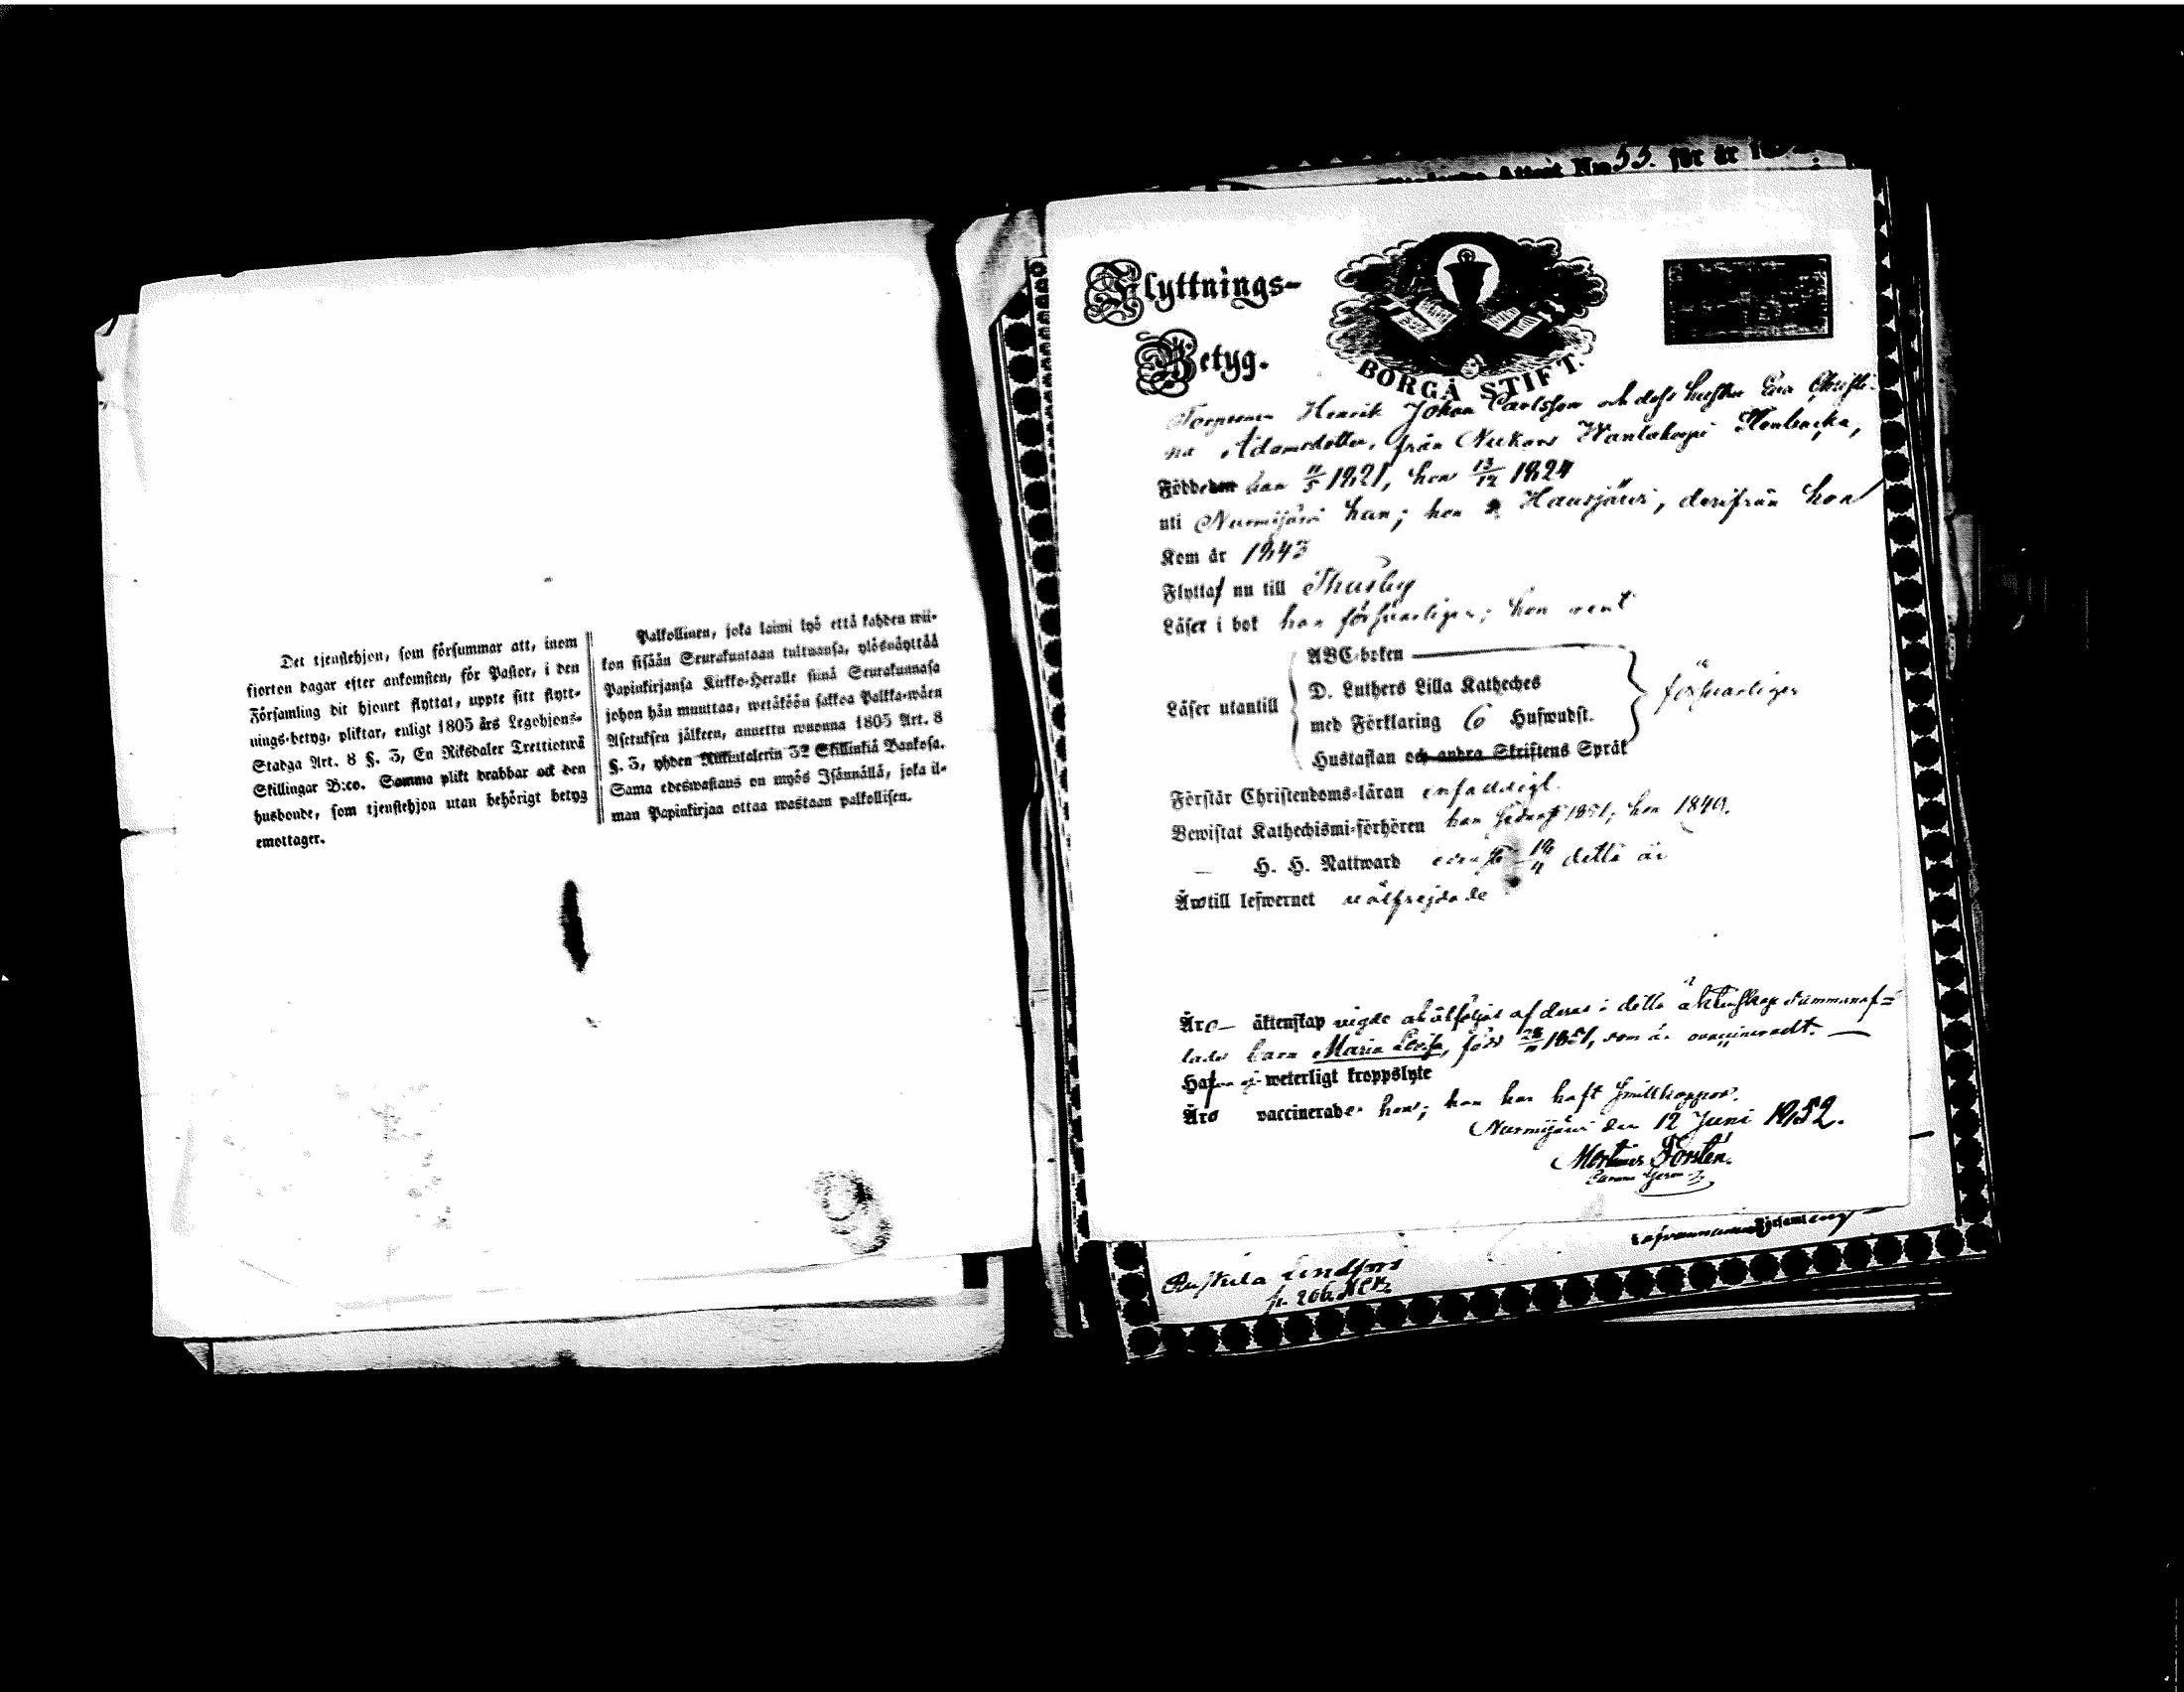 Det tjenstehjon, som försummar att, inom
fjorton dagar efter ankomsten, för Pastor, i den
Församling dit hjonet flyttat, uppte sitt flytt-
nings-betyg, pliktar, enligt 1805 års Legohjons-
Stadga Art. 8 §. 3, En Riksdaler Trettiotwå
Skillingar B:co. Samma plikt drabbar ock den
husbonde, som tjenstehjon utan behörigt betyg
emottager.
Palkollinen, joka laimi lyö että kahden wii-
kon sisään Seurakuntaan tultuansa, ylösnäyttää
Papinkirjansa Kirkko-Herralle siinä Seurakunnasa
johon hän muuttaa, wetäköön sakkoa Palkka-wäen
Asetuksen jälkeen, annettu wuonna 1805 Art. 8
§. 3, yhden Riikintalerin 32 Skillinkiä Bankosa.
Sama edeswastaus on myös Isännällä, joka il-
man Papinkirjaa ottaa wastaan palkollisen.
55. för år
Flyttnings-
Betyg.
BORGÅ STIFT.
Henrik Johan Carlsson och dess hustru Eva Christi-
na Adamsdotter, från Nukari
Född han 11/5 1821, hon 13/12 1824
uti Nurmijärvi han; hon Hausjärvi, derifrån hon
Kom år 1843
Flyttaf nu till Thusby
Läser i bok han förswarligen; hon rent
Läser utantill
ABC-boken
D. Luthers Lilla Katheches
med Förklaring 6 Hufwudst.
Hustaflan och andra Skriftens Språk
förswarligen
Förstår Christendoms-läran enfaldigt.
Bewistat Kathechismi-förhören han sednast 1851, hon 1849.
H. H. Nattward detta år
Äro till lefwernet wälfrejdade
Äro äktenskap vigde åtföljas af deras i detta äktenskap sammanaf-
lade barn Maria Lovisa, född 1851, som är ovaccineradt.
Hafva ej weterligt kroppslyte
Äro vaccinerade hon; han har haft
Nurmijärvi den 12 Juni 1852.
Forstén.
Lindfors